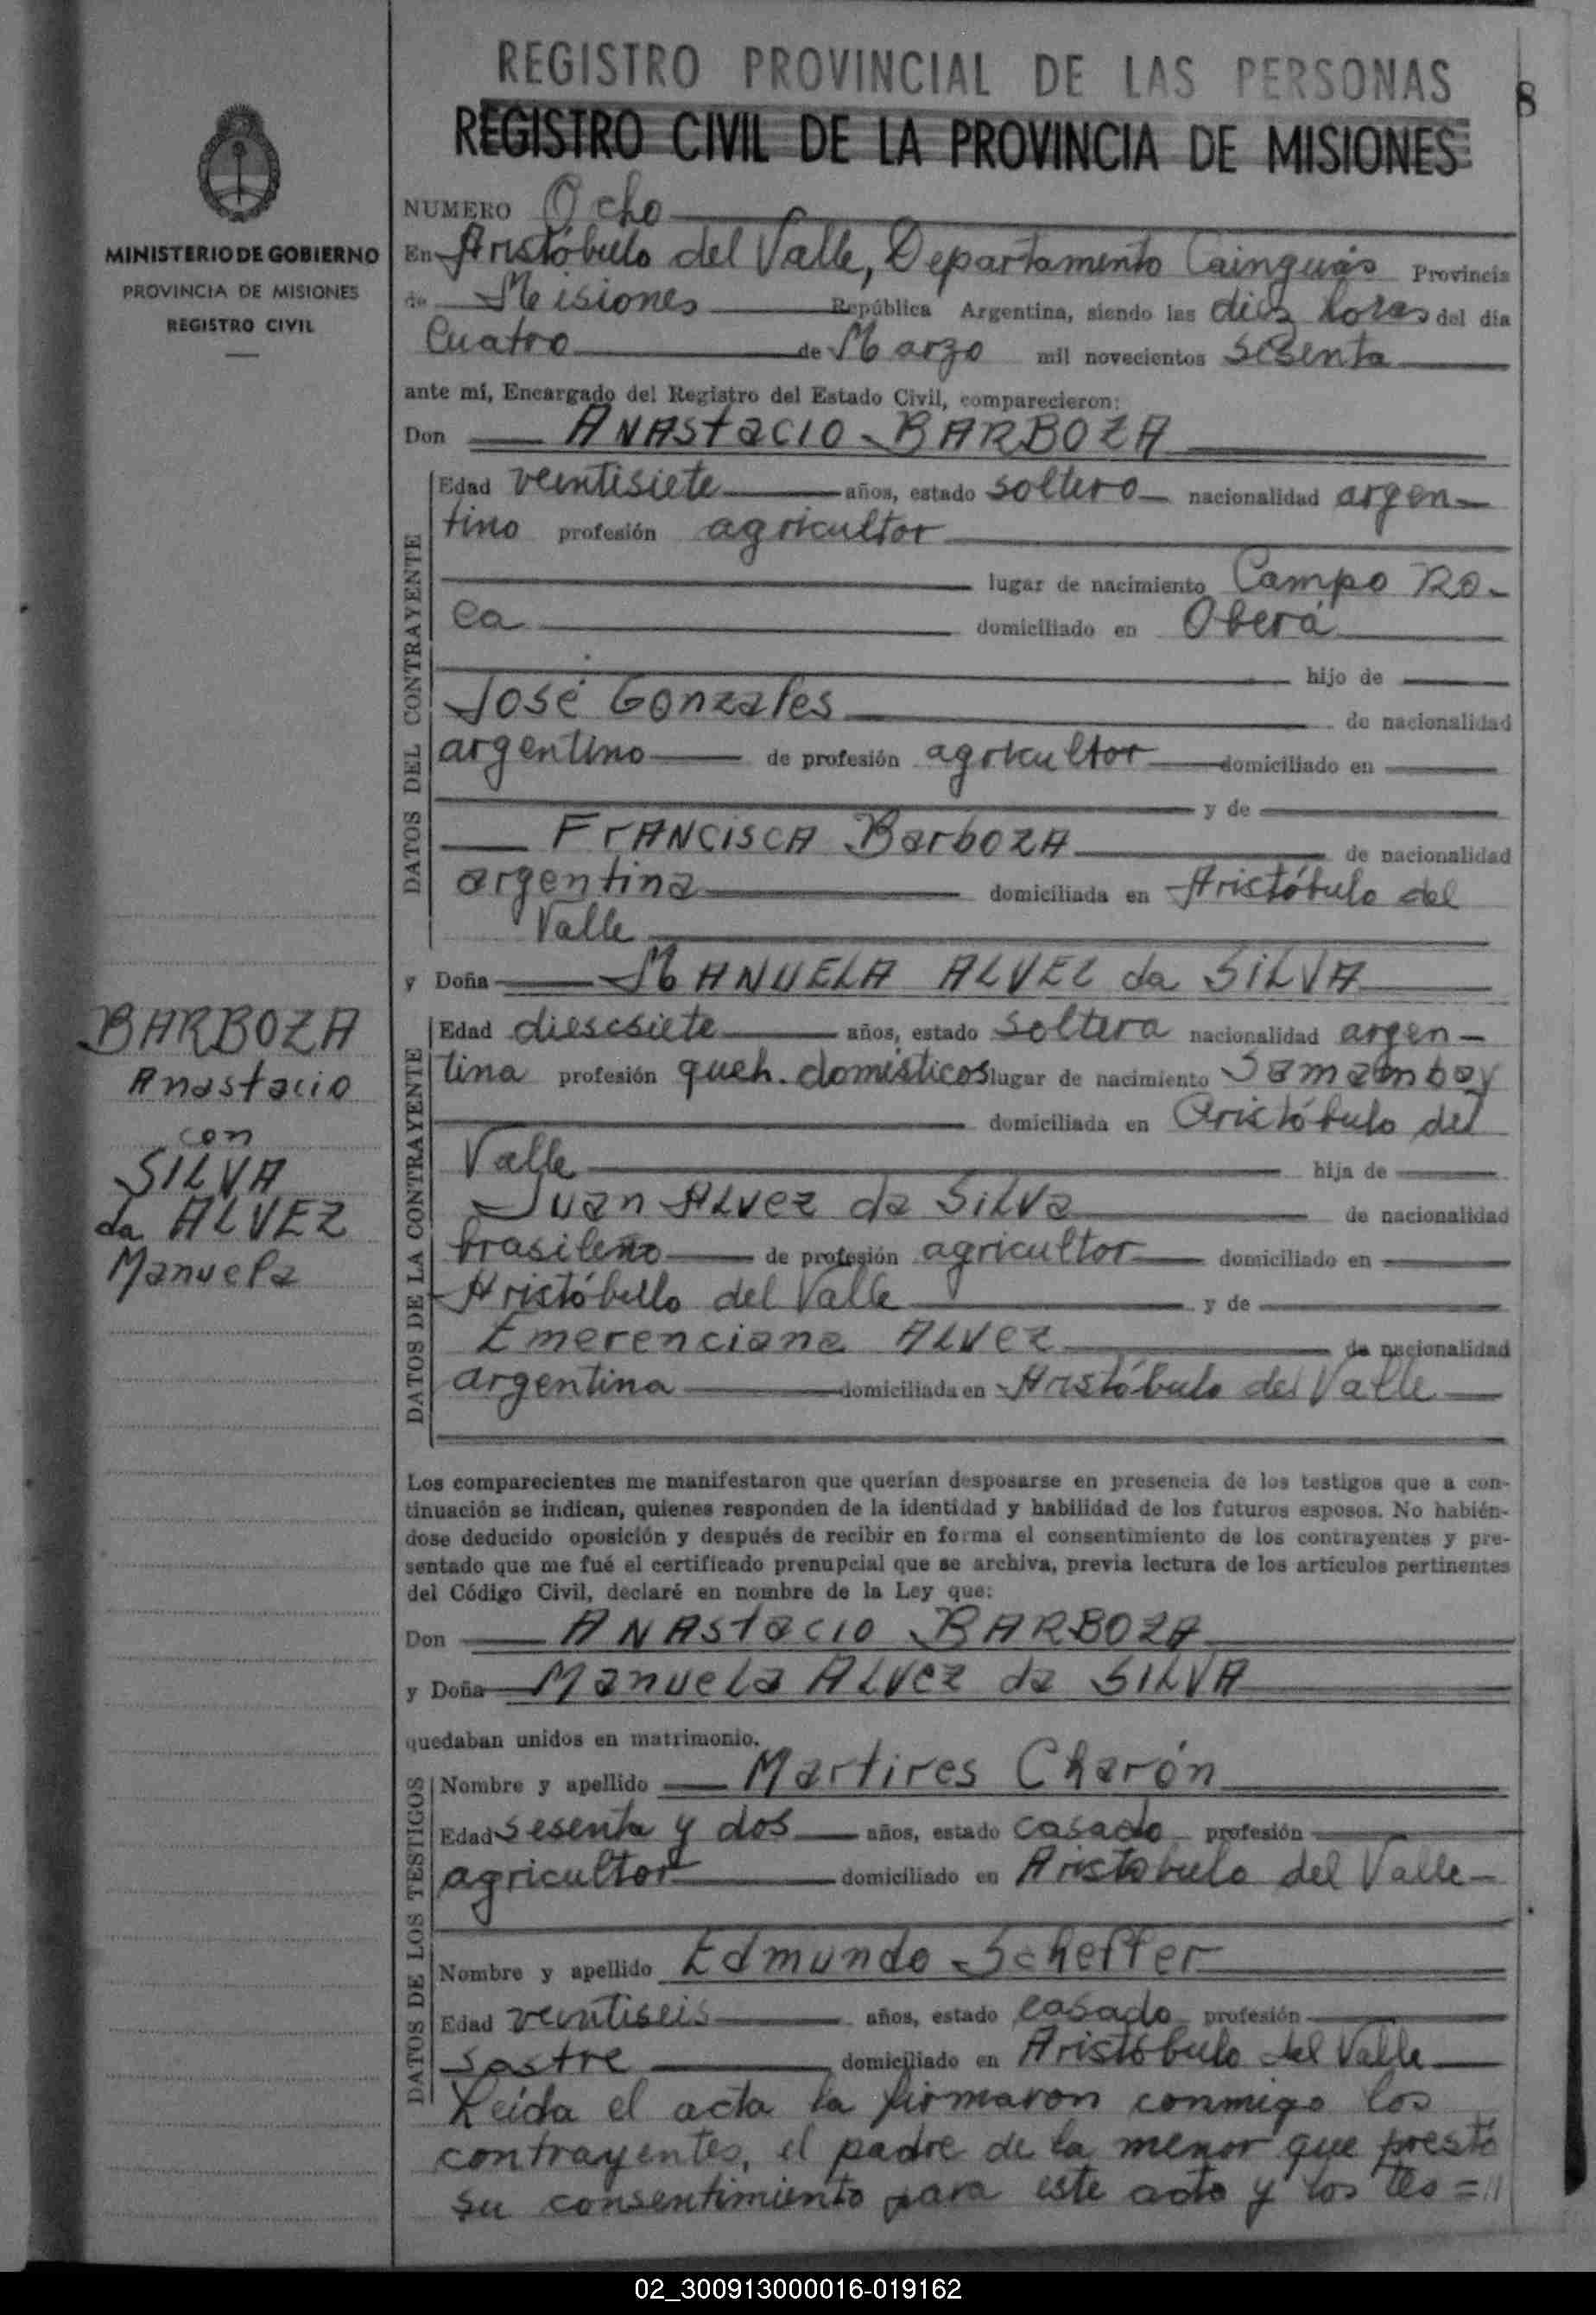 REGISTRO PROVINCIAL DE LAS PERSONAS
8
REGISTRO CIVIL DE LA PROVINCIA DE MISIONES
MINISTERIO DE GOBIERNO
PROVINCIA DE MISIONES
REGISTRO CIVIL
NUMERO Ocho
En Aristóbulo del Valle, Departamento Cainguás Provincia
de Misiones República Argentina, siendo las diez horas del día
Cuatro de Marzo mil novecientos sesenta
ante mí, Encargado del Registro del Estado Civil, comparecieron:
Don ANAStacIO BARBOZA
DATOS DEL CONTRAYENTE
Edad veintisiete años, estado soltero nacionalidad argen-
tino profesión agricultor
lugar de nacimiento Campo Ro-
ca domiciliado en Oberá
hijo de
José Gonzales de nacionalidad
argentino de profesión agricultor domiciliado en
y de
FrANCISCA BarbozA de nacionalidad
argentina domiciliada en Aristóbulo del
Valle
y Doña MANUELA ALVEZ da SILVA
BARBOZA
Anastacio
con
SILVA
da ALVEZ
Manuela
DATOS DE LA CONTRAYENTE
Edad diescsiete años, estado soltera nacionalidad argen-
tina profesión queh. domésticos lugar de nacimiento Samambay
domiciliada en Aristóbulo del
Valle hija de
Juan Alvez da Silva de nacionalidad
brasileño de profesión agricultor domiciliado en
Aristóbulo del Valle y de
Emerenciana Alvez de nacionalidad
argentina domiciliada en Aristóbulo del Valle
Los comparecientes me manifestaron que querían desposarse en presencia de los testigos que a con-
tinuación se indican, quienes responden de la identidad y habilidad de los futuros esposos. No habién-
dose deducido oposición y después de recibir en forma el consentimiento de los contrayentes y pre-
sentado que me fué el certificado prenupcial que se archiva, previa lectura de los artículos pertinentes
del Código Civil, declaré en nombre de la Ley que:
Don ANAStacIO BARBOZA
y Doña Manuela Alvez da SILVA
quedaban unidos en matrimonio.
DATOS DE LOS TESTIGOS
Nombre y apellido Martires Charón
Edad sesenta y dos años, estado casado profesión
agricultor domiciliado en Aristobulo del Valle
Nombre y apellido Edmundo Scheffer
Edad veintiseis años, estado casado profesión
sastre domiciliado en Aristóbulo del Valle
Leida el acta la firmaron conmigo los
contrayentes, el padre de la menor que prestó
su consentimiento para este acto y los tes=//
02_300913000016-019162